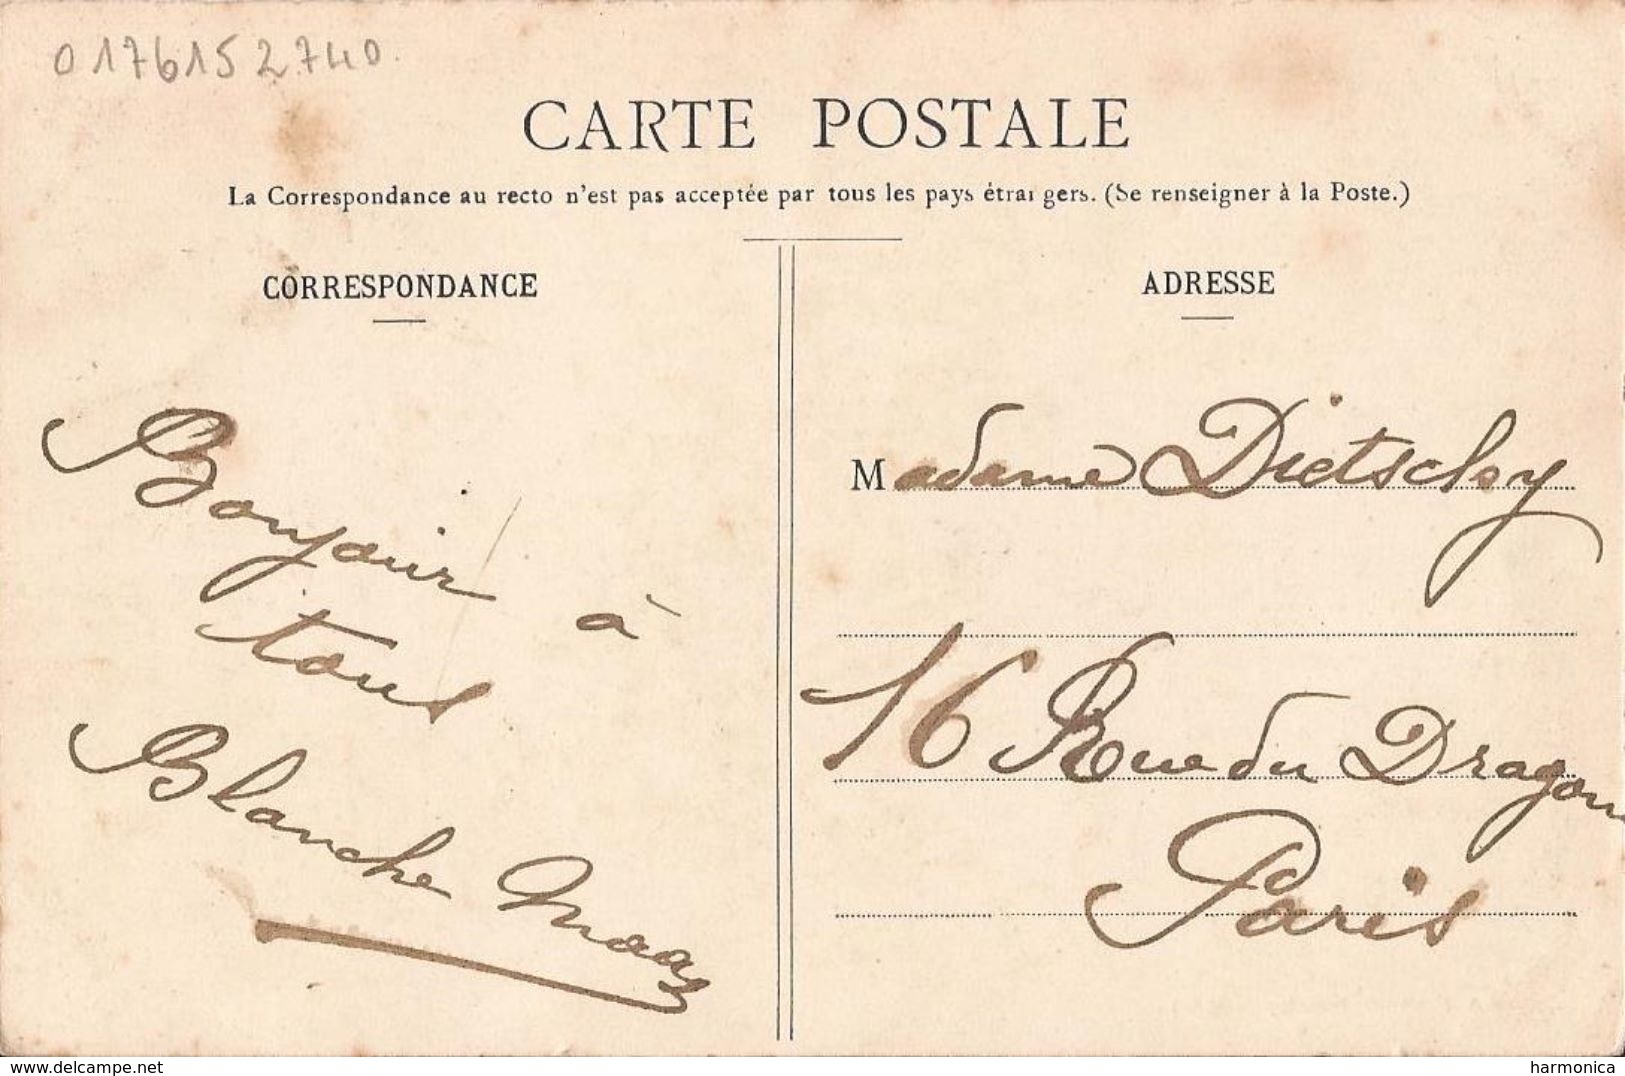 0176152740.
CARTE POSTALE
La Correspondance au recto n'est pas acceptée par tous les pays étrangers. (Se renseigner à la Poste.)
CORRESPONDANCE
Bonjour à
tous
Blanche Maas
ADRESSE
Madame Dietschy
16 Rue du Dragon
Paris
www.delcampe.net
harmonica